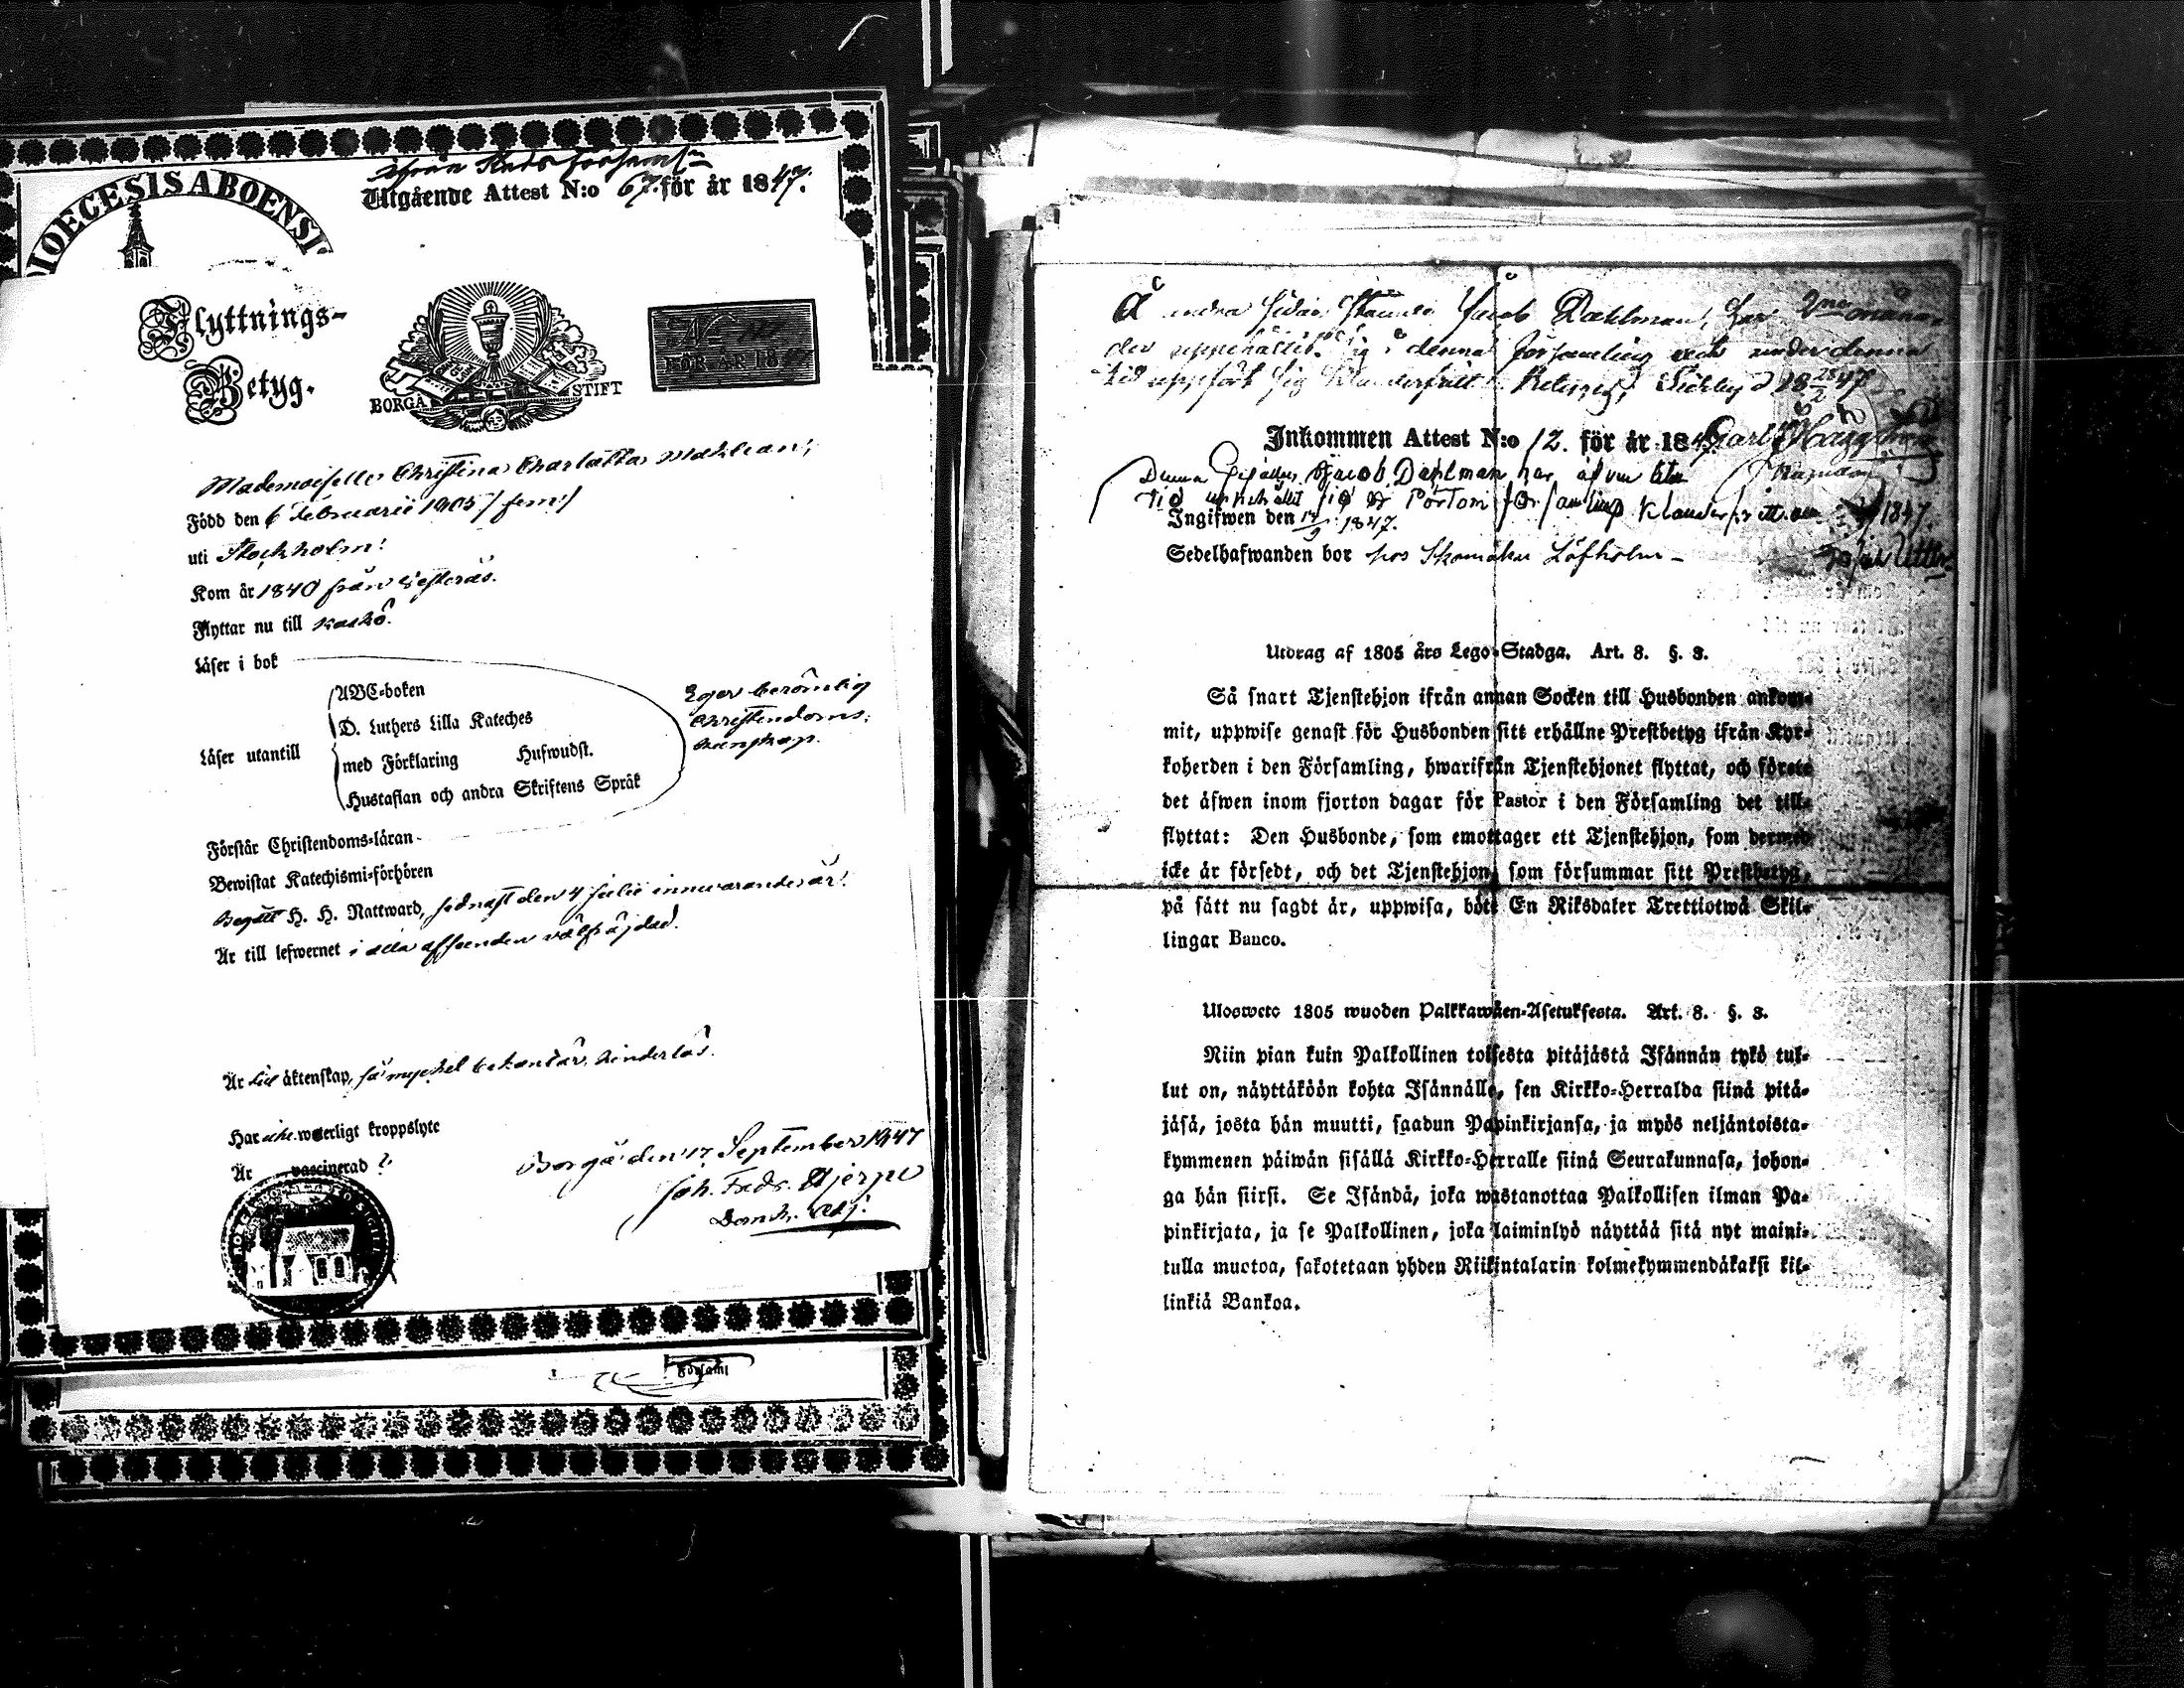 ifrån Stads Församln
Utgående Attest N:o 67. för år 1847.
DIOECESIS ABOENSI
Flyttnings-
Betyg.
BORGÅ STIFT
N:o
FÖR ÅR 1847
Mademoiselle Christina Charlotta
Född den 6 Februarii 1805 / fem /
uti Stockholm.
Kom år 1840 från Westerås.
Flyttar nu till Kaskö.
Läser i bok
ABC-boken
D. Luthers Lilla Kateches
Läser utantill
med Förklaring Hufwudst.
Hustaflan och andra Skriftens Språk
Eger berömlig
Christendoms-
kunskap.
Förstår Christendoms-läran
Bewistat Katechismi-förhören
Begått H. H. Nattward, sednast den 4 Julii innevarande år.
Är till lefwernet i alla afseenden välfräjdad.
Är till äktenskap, så mycket bekant är, hinderlös.
Har icke weterligt kroppslyte
Är vaccinerad ?
Borgå den 17 September 1847
Joh. Fredr. Hjerpe
Domk. Adj.
Församl
Å andra sidan Jacob Dahlman, har 2ne måna-
der uppehållit sig i denna församling och under denna
tid uppfört sig klanderfritt
Inkommen Attest N:o 12. för år 1847.
Carl
Denna Gesällen Jacob Dahlman har äfven
tid uppehållit sig i Pörtom församling klanderfritt 1847.
Ingifwen den 1847.
Sedelhafwanden bor hos Skomakar Löfholm -
Utdrag af 1805 års Lego-Stadga. Art. 8. §. 8.
Så snart Tjenstehjon ifrån annan Socken till Husbonden ankom-
mit, uppwise genast för Husbonden sitt erhållne Prestbetyg ifrån Kyr-
koherden i den Församling, hwarifrån Tjenstehjonet flyttat, och förete
det äfwen inom fjorton dagar för Pastor i den Församling det till-
flyttat: Den Husbonde, som emottager ett Tjenstehjon, som dermed
icke är försedt, och det Tjenstehjon, som försummar sitt Prestbetyg,
på sätt nu sagdt är, uppwisa, böte En Riksdaler Trettiotwå Skil-
lingar Banco.
Ulosweto 1805 wuoden Palkkawäen-Asetuksesta. Art. 8. §. 8.
Niin pian kuin Palkollinen toisesta pitäjästä Isännän tykö tul-
lut on, näyttäköön kohta Isännälle, sen Kirkko-Herralda siinä pitä-
jäsä, josta hän muutti, saadun Papinkirjansa, ja myös neljäntoista-
kymmenen päiwän sisällä Kirkko-Herralle siinä Seurakunnasa, johon-
ga hän siirsi. Se Isändä, joka wastanottaa Palkollisen ilman Pa-
pinkirjata, ja se Palkollinen, joka laiminlyö näyttää sitä nyt maini-
tulla muotoa, sakotetaan yhden Riikintalarin kolmekymmendäkaksi kil-
linkiä Bankoa.